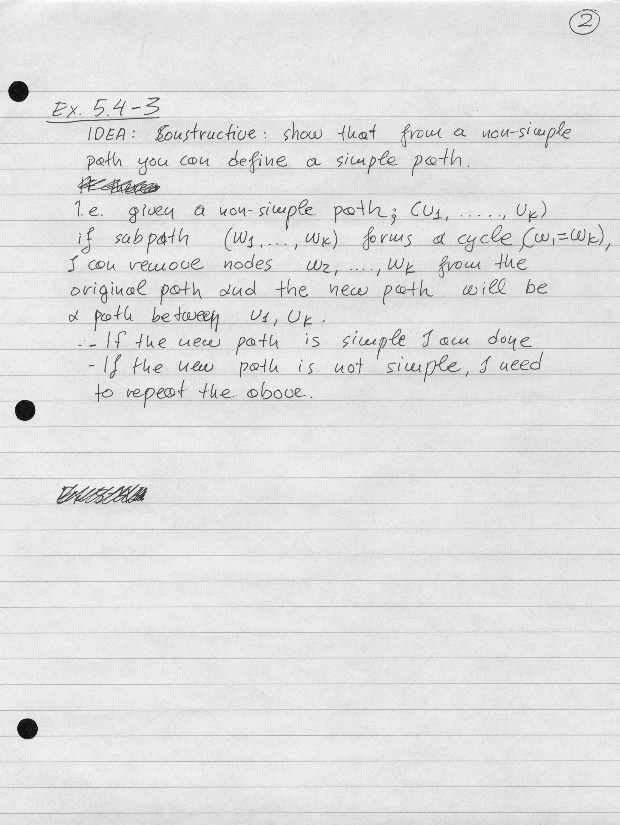 2
Ex. 5.4-3
IDEA: Constructive: show that from a non-simple
path you can define a simple path.
I.e. given a non-simple path; (U1, ....., Uk)
if subpath (W1,..., Wk) forms a cycle (W1=Wk),
I can remove nodes W2, ...., Wk from the
original path and the new path will be
a path between U1, Uk.
- If the new path is simple I am done
- If the new path is not simple, I need
to repeat the above.